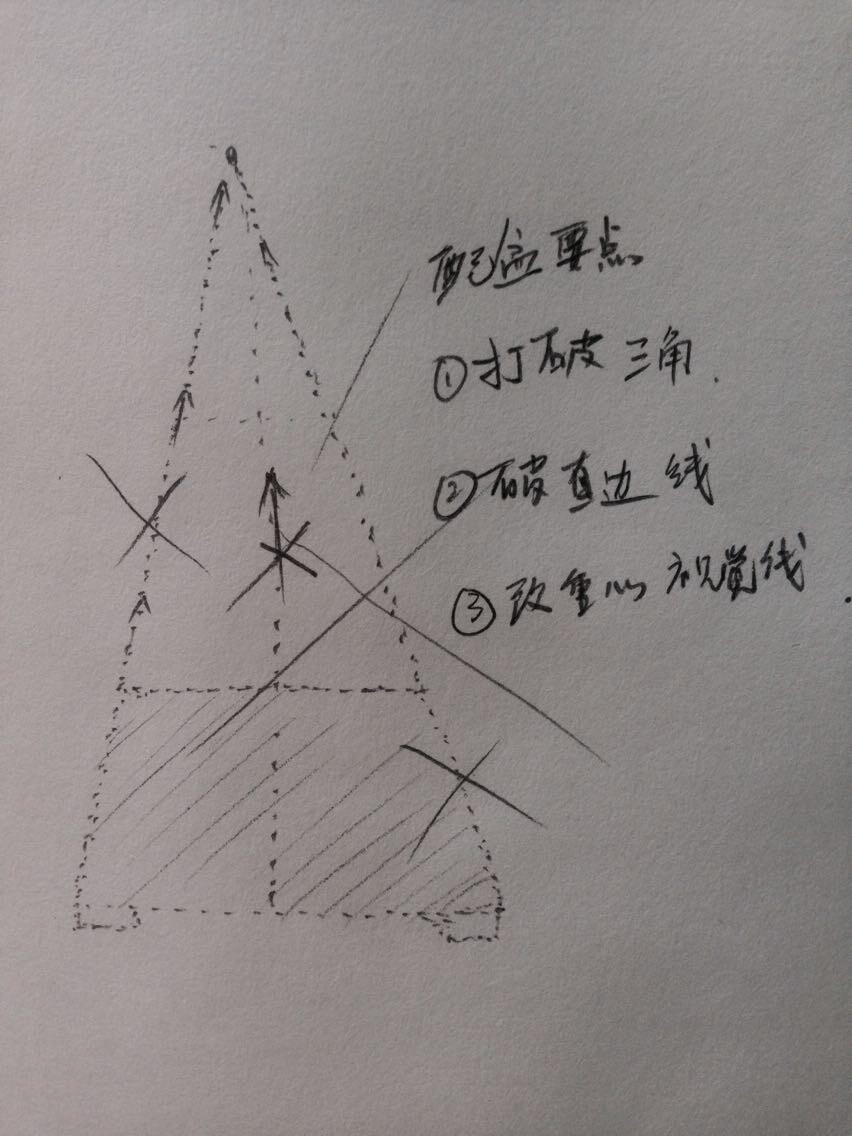 配盆要点
①打破三角.
②破直边线
③改重心视觉线.